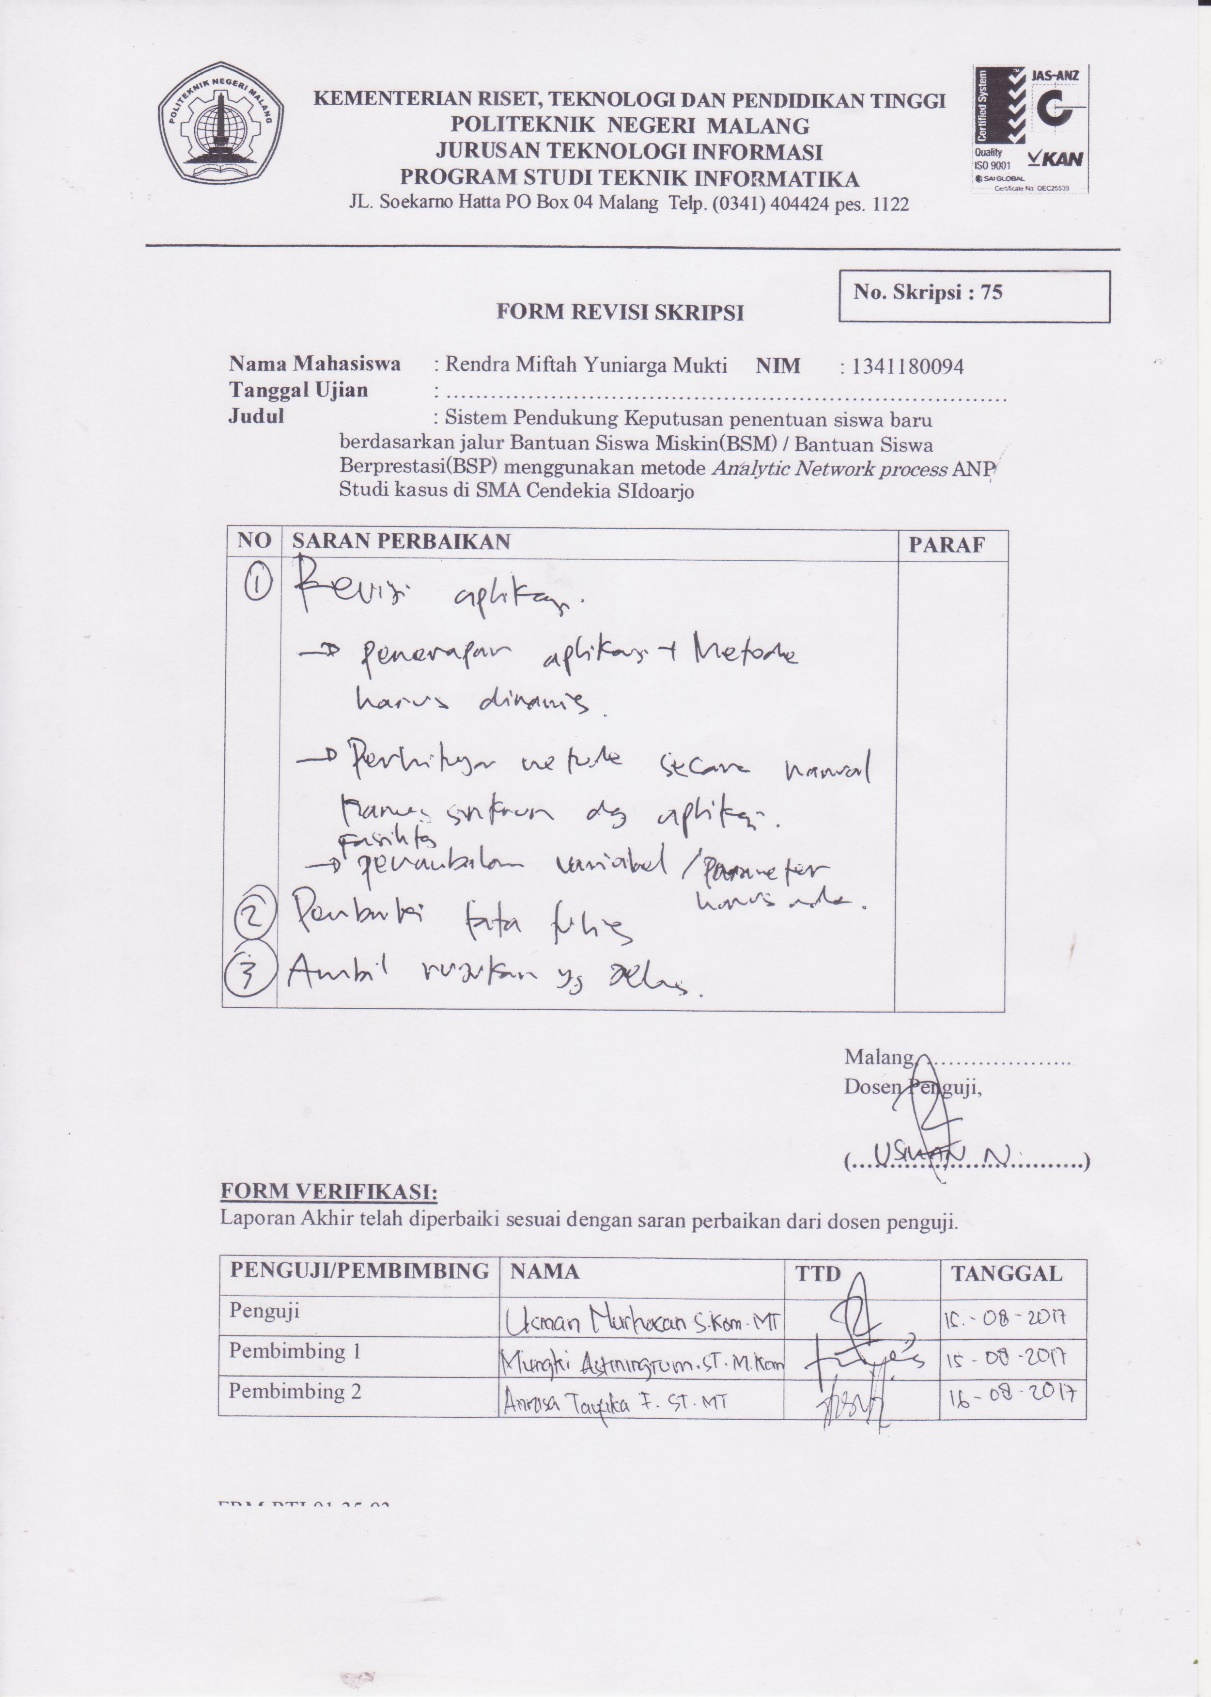 POLITEKNIK NEGERI MALANG
Certified System
JAS-ANZ
Quality
ISO 9001
KAN
SAI GLOBAL
Certificate No. QEC25539
KEMENTERIAN RISET, TEKNOLOGI DAN PENDIDIKAN TINGGI
POLITEKNIK NEGERI MALANG
JURUSAN TEKNOLOGI INFORMASI
PROGRAM STUDI TEKNIK INFORMATIKA
JL. Soekarno Hatta PO Box 04 Malang Telp. (0341) 404424 pes. 1122
No. Skripsi : 75
FORM REVISI SKRIPSI
Nama Mahasiswa : Rendra Miftah Yuniarga Mukti NIM : 1341180094
Tanggal Ujian : ..........................................................................
Judul : Sistem Pendukung Keputusan penentuan siswa baru
berdasarkan jalur Bantuan Siswa Miskin(BSM) / Bantuan Siswa
Berprestasi(BSP) menggunakan metode Analytic Network process ANP
Studi kasus di SMA Cendekia SIdoarjo
NO SARAN PERBAIKAN PARAF
1 Revisi aplikasi.
→ penerapan aplikasi + Metode
harus dinamis.
→ Perhitungan metode secara manual
harus sinkron dg aplikasi.
fasilitas
→ penambahan variabel / parameter
harus ada.
2 Perbaiki tata tulis
3 Ambil rujukan yg jelas.
Malang, ....................
Dosen Penguji,
(...USMAN N...........)
FORM VERIFIKASI:
Laporan Akhir telah diperbaiki sesuai dengan saran perbaikan dari dosen penguji.
PENGUJI/PEMBIMBING NAMA TTD TANGGAL
Penguji Usman Nurhasan S.Kom. MT 15-08-2017
Pembimbing 1 Mungki Astiningrum. ST. M.Kom 15-08-2017
Pembimbing 2 Anrosa Taufika F. ST. MT 16-08-2017